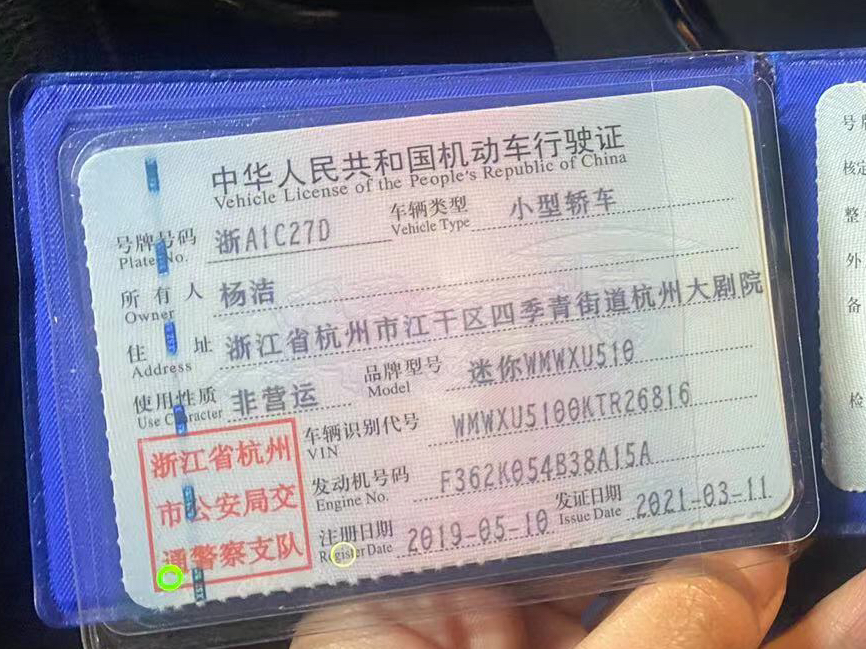 中华人民共和国机动车行驶证
Vehicle License of the People's Republic of China
号牌号码 浙A1C27D 车辆类型 小型轿车
Plate No. Vehicle Type
所有人 杨洁
Owner
住址 浙江省杭州市江干区四季青街道杭州大剧院
Address
使用性质 非营运 品牌型号 迷你WMWXU510
Use Character Model
浙江省杭州
市公安局交
通警察支队
车辆识别代号 WMWXU5100KTR26816
VIN
发动机号码 F362K054B38A15A
Engine No.
注册日期 2019-05-10 发证日期 2021-03-11
Register Date Issue Date
号牌
核定
整
外
备
检